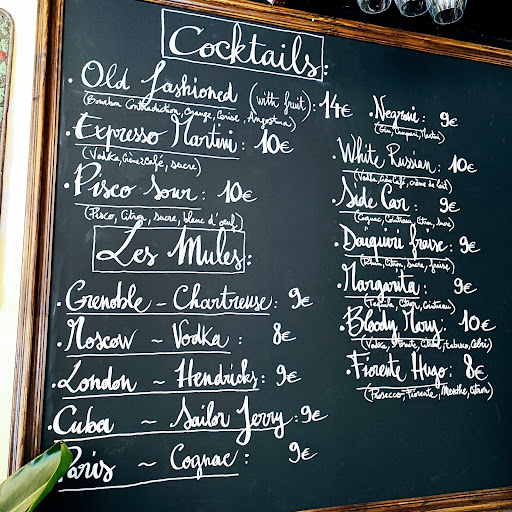 Cocktails:
• Old Fashioned (with fruit): 14€
(Bourbon Contradiction, Orange, Cerise, Angostura)
• Expresso Martini: 10€
(Vodka, Café, sucre)
• Pisco Sour: 10€
(Pisco, Citron, sucre, blanc d'oeuf)
Les Mules:
• Grenoble ~ Chartreuse: 9€
• Moscow ~ Vodka: 8€
• London ~ Hendricks: 9€
• Cuba ~ Sailor Jerry: 9€
• Paris ~ Cognac: 9€
• Negroni: 9€
(Gin, Campari, Martini)
• White Russian: 10€
(Vodka, Café, crème de lait)
• Side Car: 9€
(Cognac, Cointreau, Citron, sucre)
• Daiquiri fraise: 9€
(Rhum, Citron, sucre, fraise)
• Margarita: 9€
(Tequila, Citron, Cointreau)
• Bloody Mary: 10€
(Vodka, Tomate, Citron, tabasco, Céleri)
• Fiorente Hugo: 8€
(Prosecco, Fiorente, Menthe, Citron)